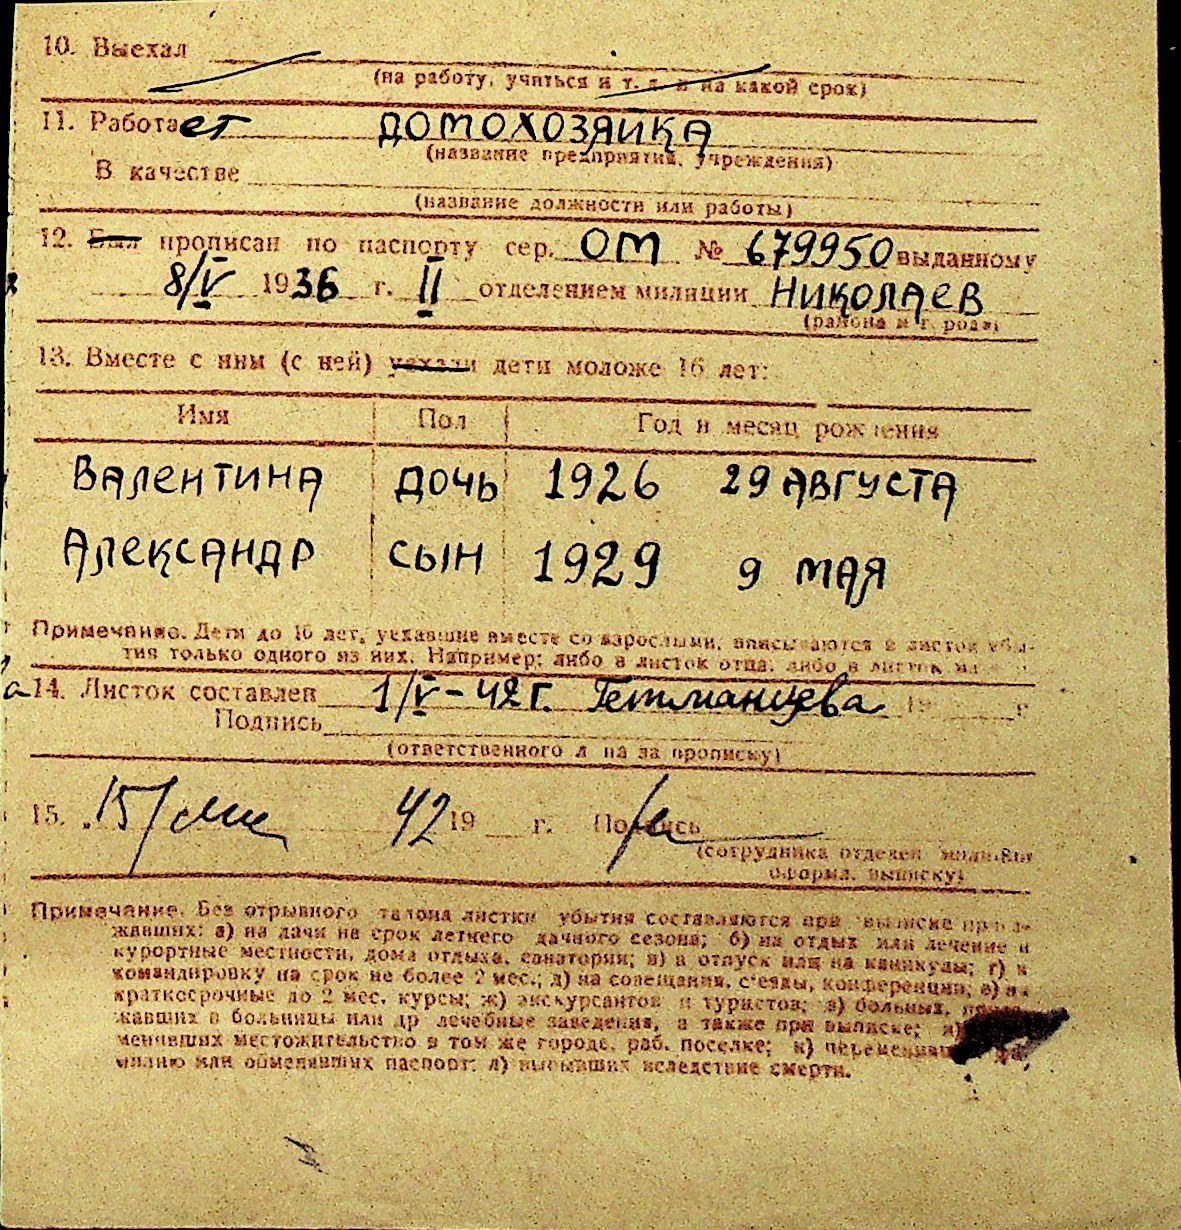 10. Выехал
(на работу, учиться и т. д. и на какой срок)
11. Работает ДОМОХОЗЯЙКА
(название предприятия, учреждения)
В качестве
(название должности или работы)
12. Был прописан по паспорту сер. ОМ № 679950 выданному
8/V 1936 г. II отделением милиции НИКОЛАЕВ
(района и города)
13. Вместе с ним (с ней) уехали дети моложе 16 лет:
Имя Пол Год и месяц рождения
ВАЛЕНТИНА ДОЧЬ 1926 29 АВГУСТА
АЛЕКСАНДР СЫН 1929 9 МАЯ
Примечание. Дети до 16 лет, уехавшие вместе со взрослыми, вписываются в листок убы-
тия только одного из них. Например: либо в листок отца, либо в листок
14. Листок составлен 1/V-42 г. Гетманцева 19 г
Подпись
(ответственного лица за прописку)
15. 15/ 42 19 г. Подпись
(сотрудника отделен милиции
оформл. выписку)
Примечание. Без отрывного талона листки убытия составляются при выписке
жавших: а) на дачи на срок летнего дачного сезона; б) на отдых или лечение в
курортные местности, дома отдыха, санатории; в) в отпуск или на каникулы; г) в
командировку на срок не более 2 мес.; д) на совещания, съезды, конференции; е) на
краткосрочные до 2 мес. курсы; ж) экскурсантов и туристов; з) больных,
жавших в больницы или др лечебные заведения, а также при выписке; и)
менивших местожительство в том же городе, раб. поселке; к) переменивш фа-
милию или обменявших паспорт; л) выбывших вследствие смерти.